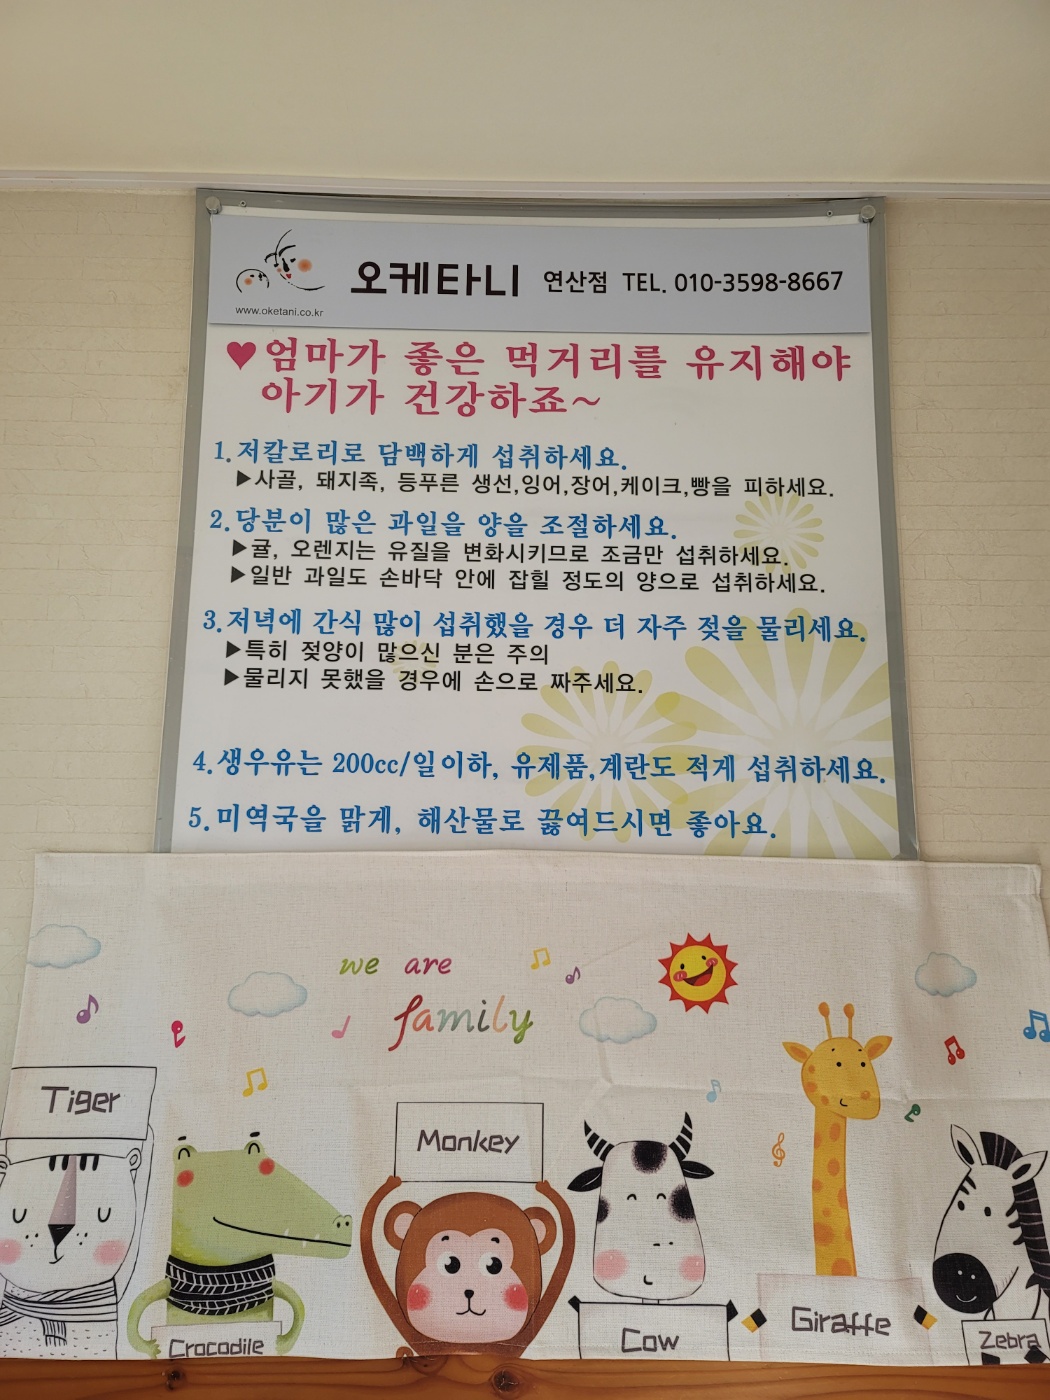 오케타니 연산점 TEL. 010-3598-8667
www.oketani.co.kr
♥엄마가 좋은 먹거리를 유지해야
아기가 건강하죠~
1.저칼로리로 담백하게 섭취하세요.
▶사골, 돼지족, 등푸른 생선,잉어,장어,케이크,빵을 피하세요.
2.당분이 많은 과일을 양을 조절하세요.
▶귤, 오렌지는 유질을 변화시키므로 조금만 섭취하세요.
▶일반 과일도 손바닥 안에 잡힐 정도의 양으로 섭취하세요.
3.저녁에 간식 많이 섭취했을 경우 더 자주 젖을 물리세요.
▶특히 젖양이 많으신 분은 주의
▶물리지 못했을 경우에 손으로 짜주세요.
4.생우유는 200cc/일이하, 유제품,계란도 적게 섭취하세요.
5.미역국을 맑게, 해산물로 끓여드시면 좋아요.
we are
family
Tiger
Monkey
Crocodile
Cow
Giraffe
Zebra